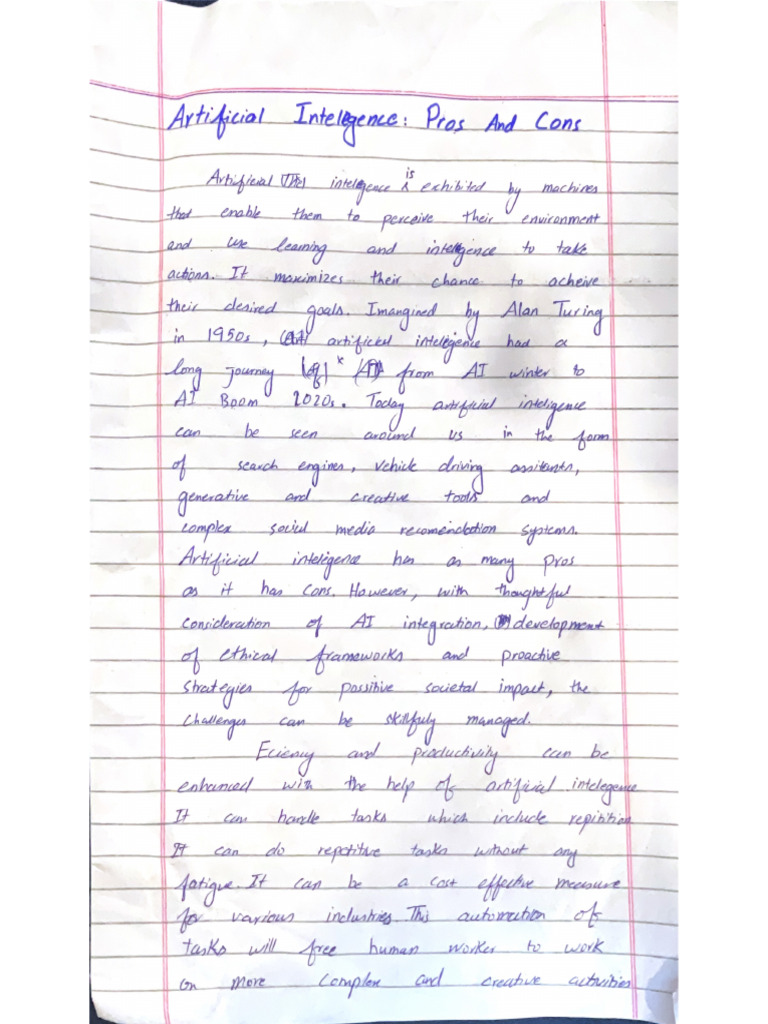 Artificial Intelegence: Pros And Cons
Artificial intelegence is exhibited by machines
that enable them to perceive their environment
and use learning and intelegence to take
actions. It maximizes their chance to acheive
their desired goals. Imangined by Alan Turing
in 1950s, artificial intelegence had a
long journey from AI winter to
AI Boom 2020s. Today artificial inteligence
can be seen around us in the form
of search engines, vehicle driving assitants,
generative and creative tools and
complex social media recomendation systems.
Artificial intelegence has as many pros
as it has cons. However, with thoughtful
consideration of AI integration, development
of ethical frameworks and proactive
strategies for possitive societal impact, the
challenges can be skillfuly managed.
Eciency and productivity can be
enhanced with the help of artificial intelegence
It can handle tasks which include repitition
It can do repetitive tasks without any
fatigue. It can be a cost effective measure
for various industries. This automation of
tasks will free human worker to work
on more complex and creative activities